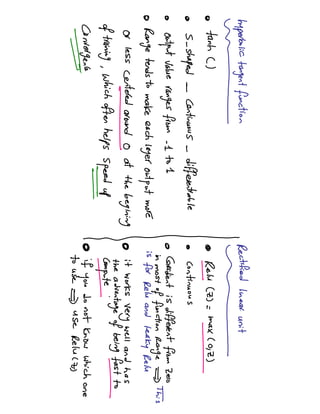 hyperbolic tangent function
tanh ()
S_shaped _ Continuous _ differentiable
output value ranges from -1 to 1
Range tends to make each layer output more
or less centered around 0 at the begining
of training, which often helps speed up
Convergence
Rectified linear unit
Relu (z) = max (0,z)
Continuous
Gradient is different from zero
in most of function range ⇒ This
is for Relu and leaky Relu
it works very well and has
the advantage of being fast to
Compute.
if you do not know which one
to use ⇒ use Relu(z)